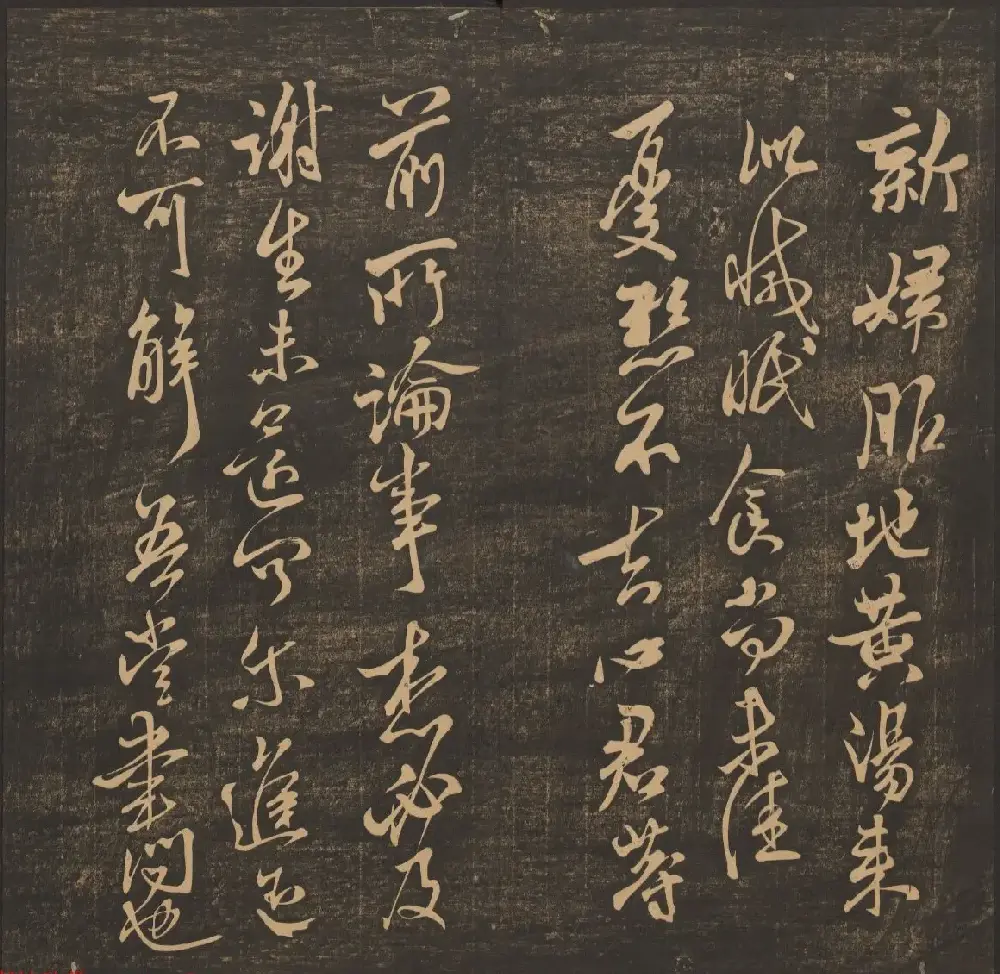 新婦服地黄湯来
似減眠食尚未佳
憂懸不去心君等
前所論事想必及
謝生未還何尔進退
不可解吾當書問也